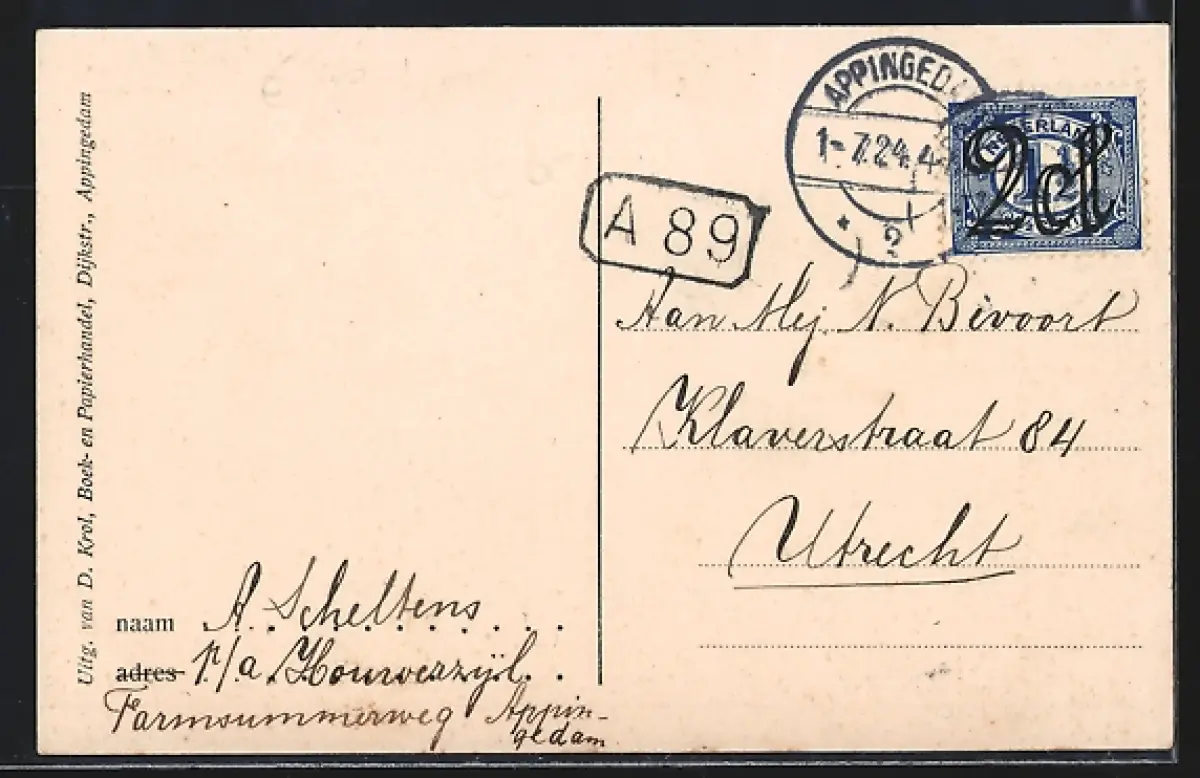 Uitg. van D. Krol, Boek- en Papierhandel, Dijkstr., Appingedam
APPINGEDAM
1-7.24.4
2
NEDERLAND
1½
2 ct
A 89
Aan Mej. N. Bevoort
Klaverstraat 84
Utrecht
naam A. Scheltens
adres p/a Houwerzijl
Farmsummerweg Appin-
gedam